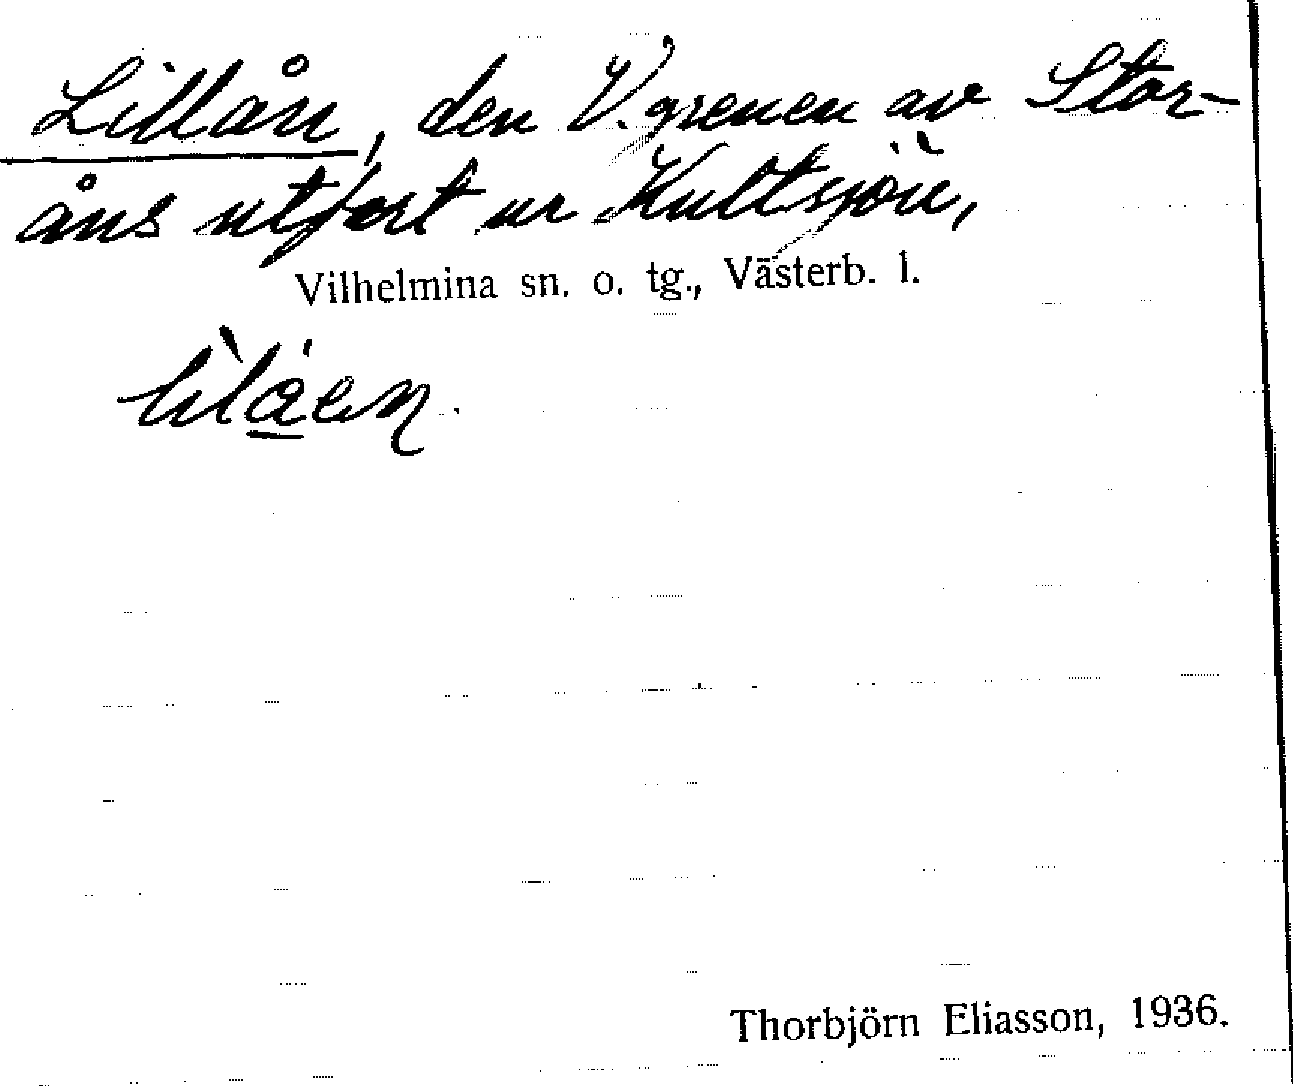 Lillån, den V. grenen av Stor-
åns utfart ur Kultsjön,
Vilhelmina sn. o. tg., Västerb. l.
Thorbjörn Eliasson, 1936.